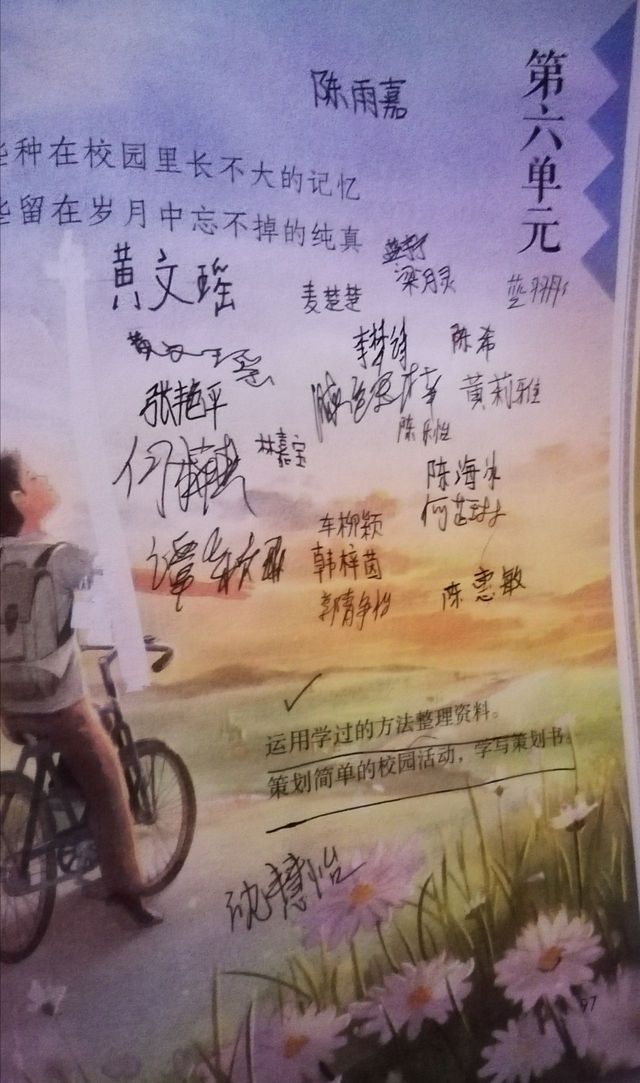 陈雨嘉
第六单元
些种在校园里长不大的记忆
些留在岁月中忘不掉的纯真
黄文瑶
麦楚楚
梁月灵
李梦
陈希
张艳平
黄莉雅
陈乐怡
林嘉宝
陈海冰
何
车柳颖
韩梓茵
郭静怡
陈惠敏
运用学过的方法整理资料。
策划简单的校园活动，学写策划书。
沈慧怡
97